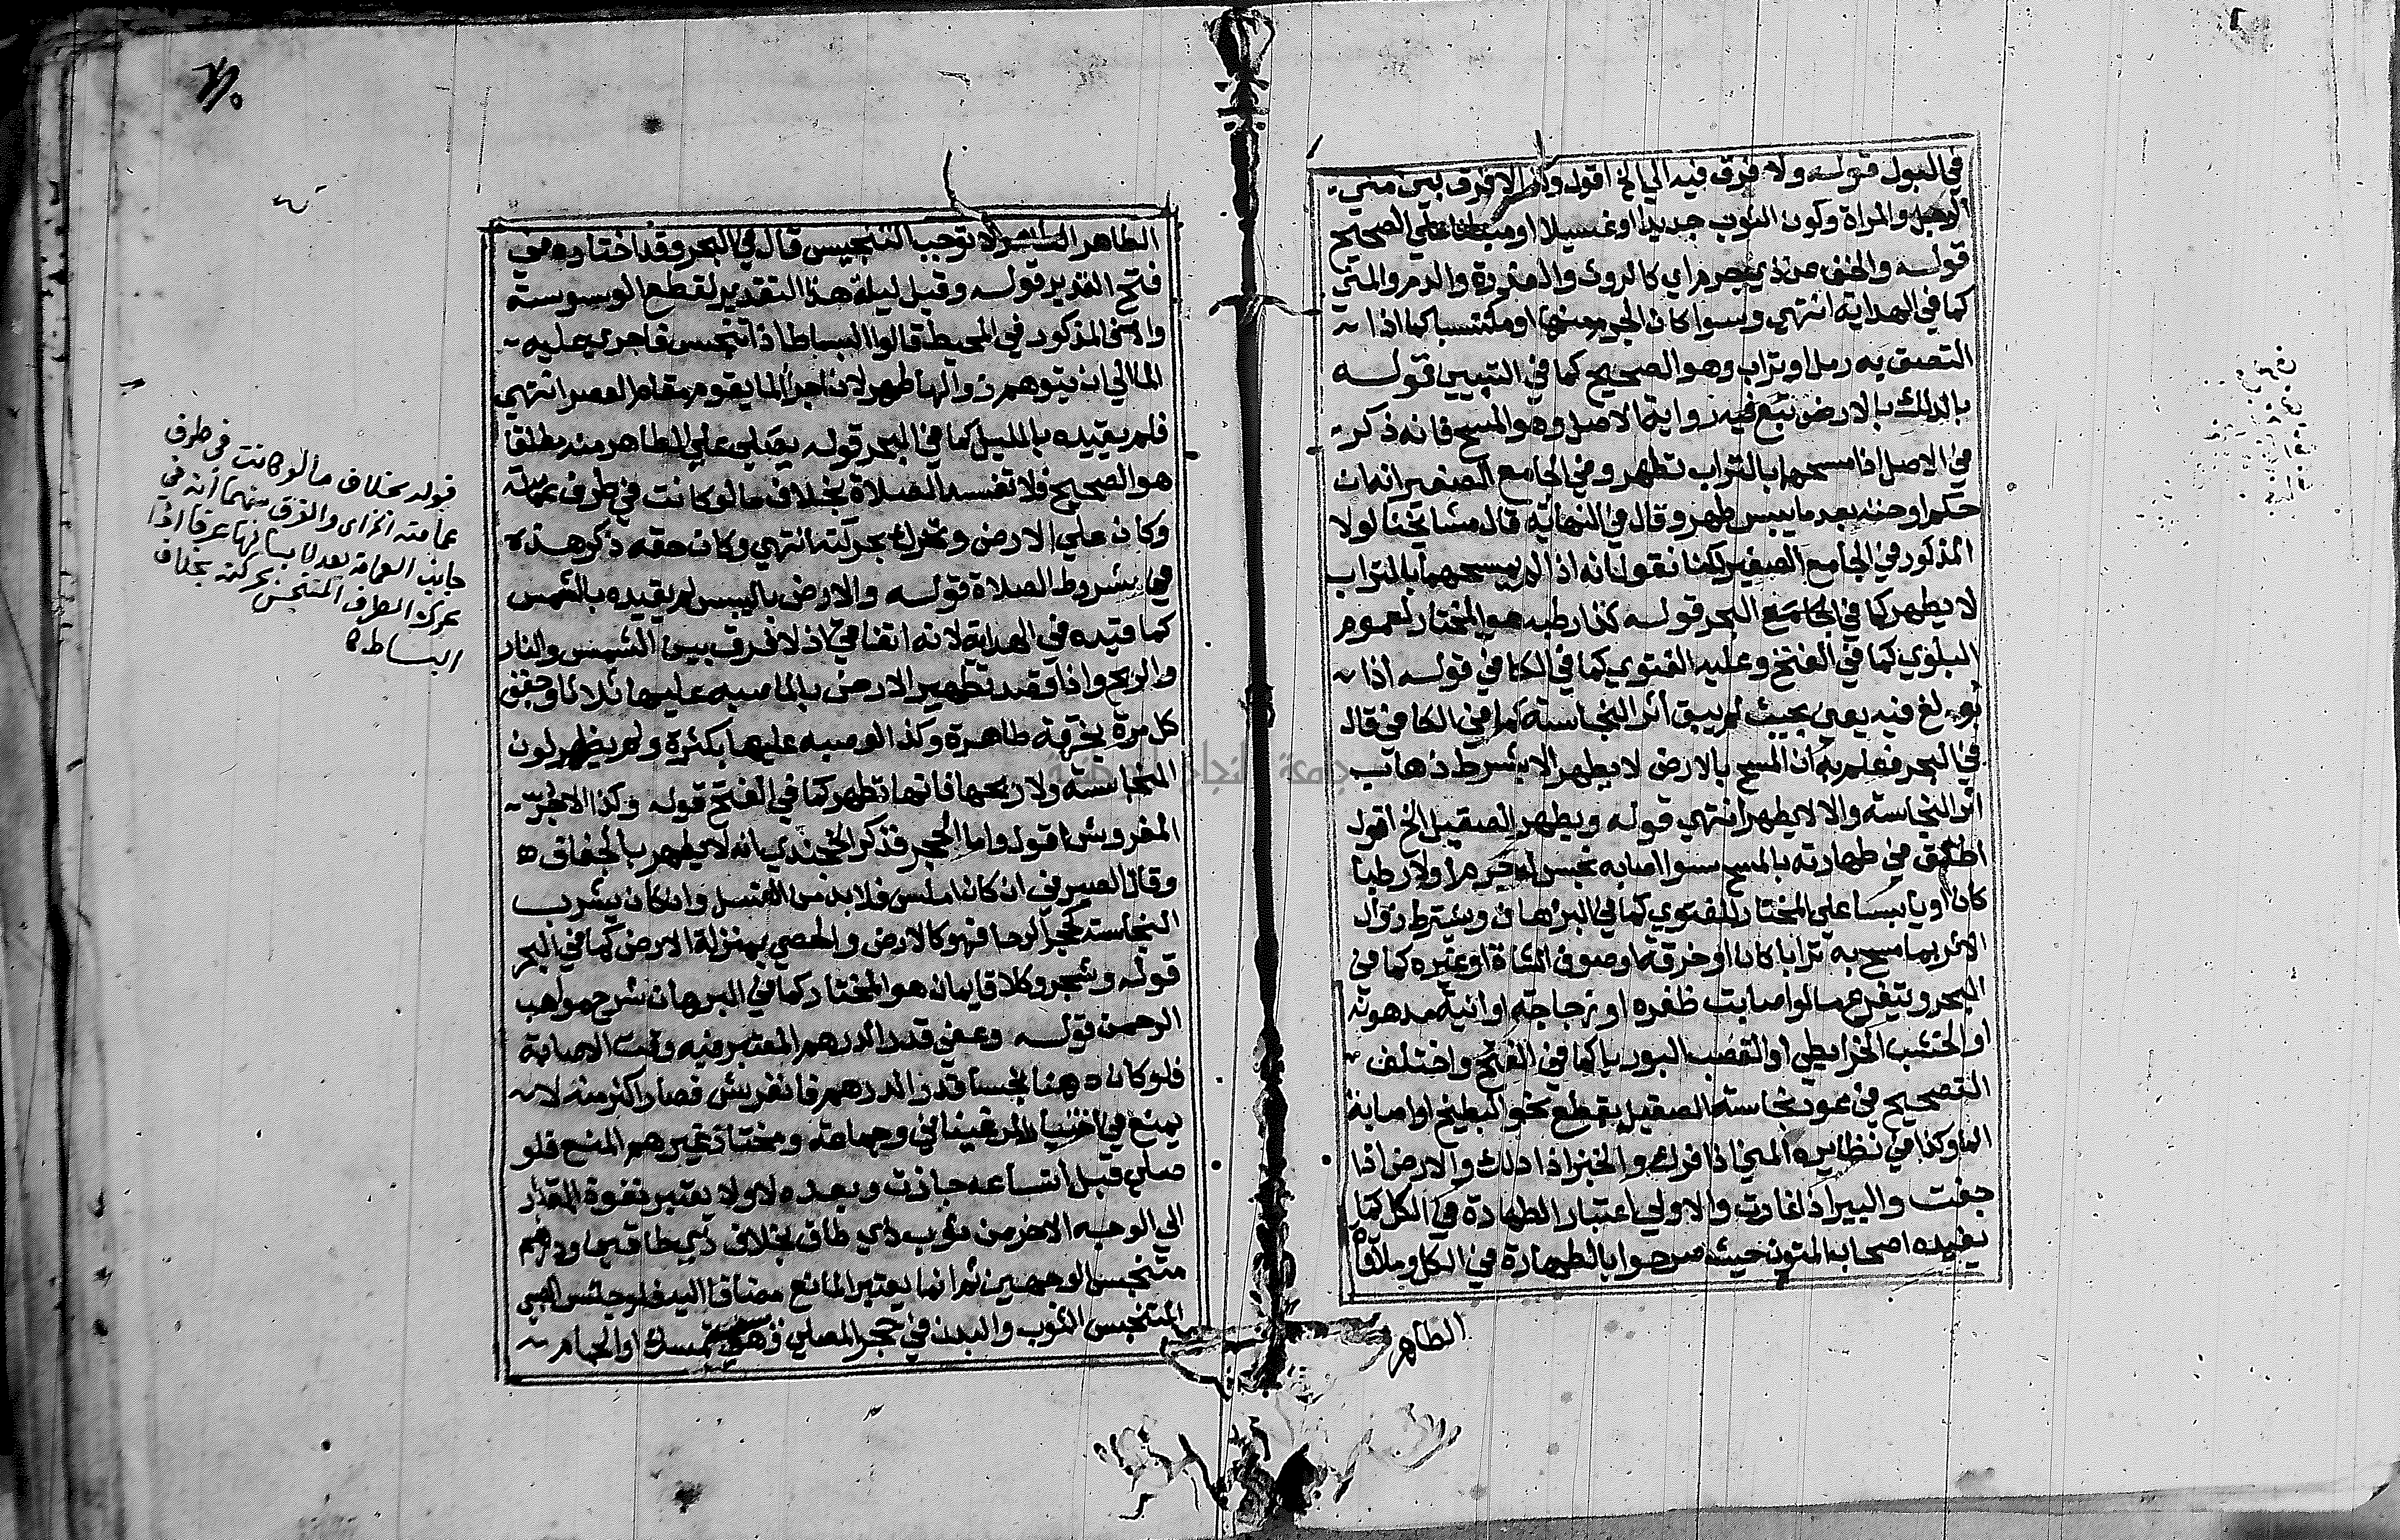 في البول قوله ولا فرق فيه الي الخ اقول و الا فرق بين مني
الرجل والمراة وكون الثوب جديدا او غسيلا او مبطنا علي الصحيح
قوله والخف عن ذي جرم اي كالروث والعذرة والدم والمني
كما في الهداية انتهي وسوا كان الجرم منها او مكتسبا كما اذا
التصق به رمل او تراب وهو الصحيح كما في التبيين قوله
بالدلك بالارض تبع فيه رواية الاصل وهو المسح فانه ذكر
في الاصل اذا مسحها بالتراب تطهر وفي الجامع الصغير انه ان
حكه او حته بعد ما يبس طهر وقال في النهاية قال مشايخنا لولا
المذكور في الجامع الصغير لكنا نقول انه اذا لم يمسحهما بالتراب
لا يطهر كما في البحر قوله كذا رطبه هو المختار لعموم
البلوي كما في الفتح وعليه الفتوي كما في الكافي قوله اذا
بولغ فيه يعني بحيث لم يبق اثر النجاسة كما في الكافي قال
في البحر فعلم به ان المسح بالارض لا يطهر الا بشرط ذهاب
اثر النجاسة والا لا يطهر انتهي قوله ويطهر الصقيل الخ اقول
اطلق في طهارته بالمسح سوا اصابه نجس له جرم اولا رطبا
كان او يابسا علي المختار للفتوي كما في البرهان ويشترط زوال
الاثر بما مسح به ترابا كان او خرقة او صوف الشاة او غيره كما في
البحر ويتفرع ما لو اصابت ظفره او زجاجة او انية مدهونة
او الخشب الخرايطي او القصب البوريا كما في الفتح واختلف
التصحيح في عود نجاسة الصقيل بقطع نحو البطيخ او اصابة
الما وكذا في نظايره المني اذا فرك والخف اذا دلك والارض اذا
جفت والبير اذا غارت والاولي اعتبار الطهارة في الكل كما
يفيده اصحاب المتون حيث صرحوا بالطهارة في الكل وملاقاة
الطاهر
الطاهر الطاهر لا توجب التنجيس قال في البحر وقد اختاره في
فتح القدير قوله وقيل ليلة هذا التقدير لقطع الوسوسة
والا فالمذكور في المحيط قالوا البساط اذا تنجس فاجري عليه
الما الي ان يتوهم زوالها طهر لان اجرا الما يقوم مقام العصر انتهي
فلم يقيده بالليل كما في البحر قوله يصلي علي الطاهر منه مطلقا
هو الصحيح فلا تفسد الصلاة بخلاف ما لو كانت في طرف عمامته
وكان علي الارض وتحرك بحركته انتهي وكان حقه ذكر هذه
في شروط الصلاة قوله والارض باليبس لم يقيده بالشمس
كما قيده في الهداية لانه اتفاقي اذ لا فرق بين الشمس والنار
والريح واذا قصد تطهير الارض بالما صبه عليها ثلاثا وجفف
كل مرة بخرقة طاهرة وكذا لو صبه عليها بكثرة ولم يظهر لون
النجاسة ولا ريحها فانها تطهر كما في الفتح قوله وكذا الاجر
المفروش اقول واما الحجر فذكر الخجندي انه لا يطهر بالجفاف
وقال الصيرفي ان كان املس فلا بد من الغسل وان كان يشرب
النجاسة كحجر الرحا فهو كالارض والحصي بمنزلة الارض كما في البحر
قوله وشجر وكلا قايمان هو المختار كما في البرهان شرح مواهب
الرحمن قوله وعفي قدر الدرهم المعتبر فيه وقت الاصابة
فلو كان دهنا نجسا قدر الدرهم فانفرش فصار اكثر منه لا
يمنع في اختيار المرغيناني وجماعة ومختار غيرهم المنع فلو
صلي قبل اتساعه جازت وبعده لا ولا يعتبر نفوذ المقدار
الي الوجه الاخر من ثوب ذي طاق بخلاف ذي طاقين ودرهم
متنجس الوجهين ثم انما يعتبر المانع مضافا اليه فلو جلس الصبي
المتنجس الثوب والبدن في حجر المصلي وهو يستمسك او الحمام
قوله بخلاف ما لو كانت في طرف
عمامته الخ اي والفرق بينهما أنه في
جانب العمامة يعد لابسا لها عرفا اذا
تحرك الطرف المتنجس بحركته بخلاف
البساط